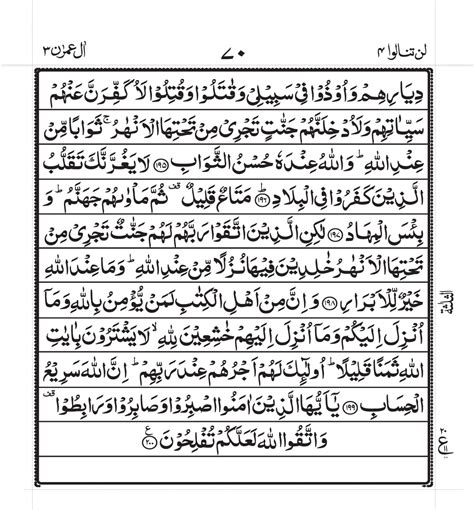 لن تنالوا ۴ ۷۰ اٰل عمرٰن ۳
دِيَارِهِمْ وَاُوْذُوْا فِيْ سَبِيْلِيْ وَقٰتَلُوْا وَقُتِلُوْا لَاُكَفِّرَنَّ عَنْهُمْ
سَيِّاٰتِهِمْ وَلَاُدْخِلَنَّهُمْ جَنّٰتٍ تَجْرِيْ مِنْ تَحْتِهَا الْاَنْهٰرُ ۚ ثَوَابًا مِّنْ
عِنْدِ اللّٰهِ ؕ وَاللّٰهُ عِنْدَهٗ حُسْنُ الثَّوَابِ ﴿۱۹۵﴾ لَا يَغُرَّنَّكَ تَقَلُّبُ
الَّذِيْنَ كَفَرُوْا فِي الْبِلَادِ ﴿۱۹۶﴾ؕ مَتَاعٌ قَلِيْلٌ ۟ ثُمَّ مَاْوٰىهُمْ جَهَنَّمُ ؕ وَ
بِئْسَ الْمِهَادُ ﴿۱۹۷﴾ لٰكِنِ الَّذِيْنَ اتَّقَوْا رَبَّهُمْ لَهُمْ جَنّٰتٌ تَجْرِيْ مِنْ
تَحْتِهَا الْاَنْهٰرُ خٰلِدِيْنَ فِيْهَا نُزُلًا مِّنْ عِنْدِ اللّٰهِ ؕ وَمَا عِنْدَ اللّٰهِ
خَيْرٌ لِّلْاَبْرَارِ ﴿۱۹۸﴾ وَاِنَّ مِنْ اَهْلِ الْكِتٰبِ لَمَنْ يُّؤْمِنُ بِاللّٰهِ وَمَآ
اُنْزِلَ اِلَيْكُمْ وَمَآ اُنْزِلَ اِلَيْهِمْ خٰشِعِيْنَ لِلّٰهِ ۙ لَا يَشْتَرُوْنَ بِاٰيٰتِ
اللّٰهِ ثَمَنًا قَلِيْلًا ؕ اُولٰٓئِكَ لَهُمْ اَجْرُهُمْ عِنْدَ رَبِّهِمْ ؕ اِنَّ اللّٰهَ سَرِيْعُ
الْحِسَابِ ﴿۱۹۹﴾ يٰٓاَيُّهَا الَّذِيْنَ اٰمَنُوا اصْبِرُوْا وَصَابِرُوْا وَرَابِطُوْا ۟
وَاتَّقُوا اللّٰهَ لَعَلَّكُمْ تُفْلِحُوْنَ ﴿۲۰۰﴾ ع